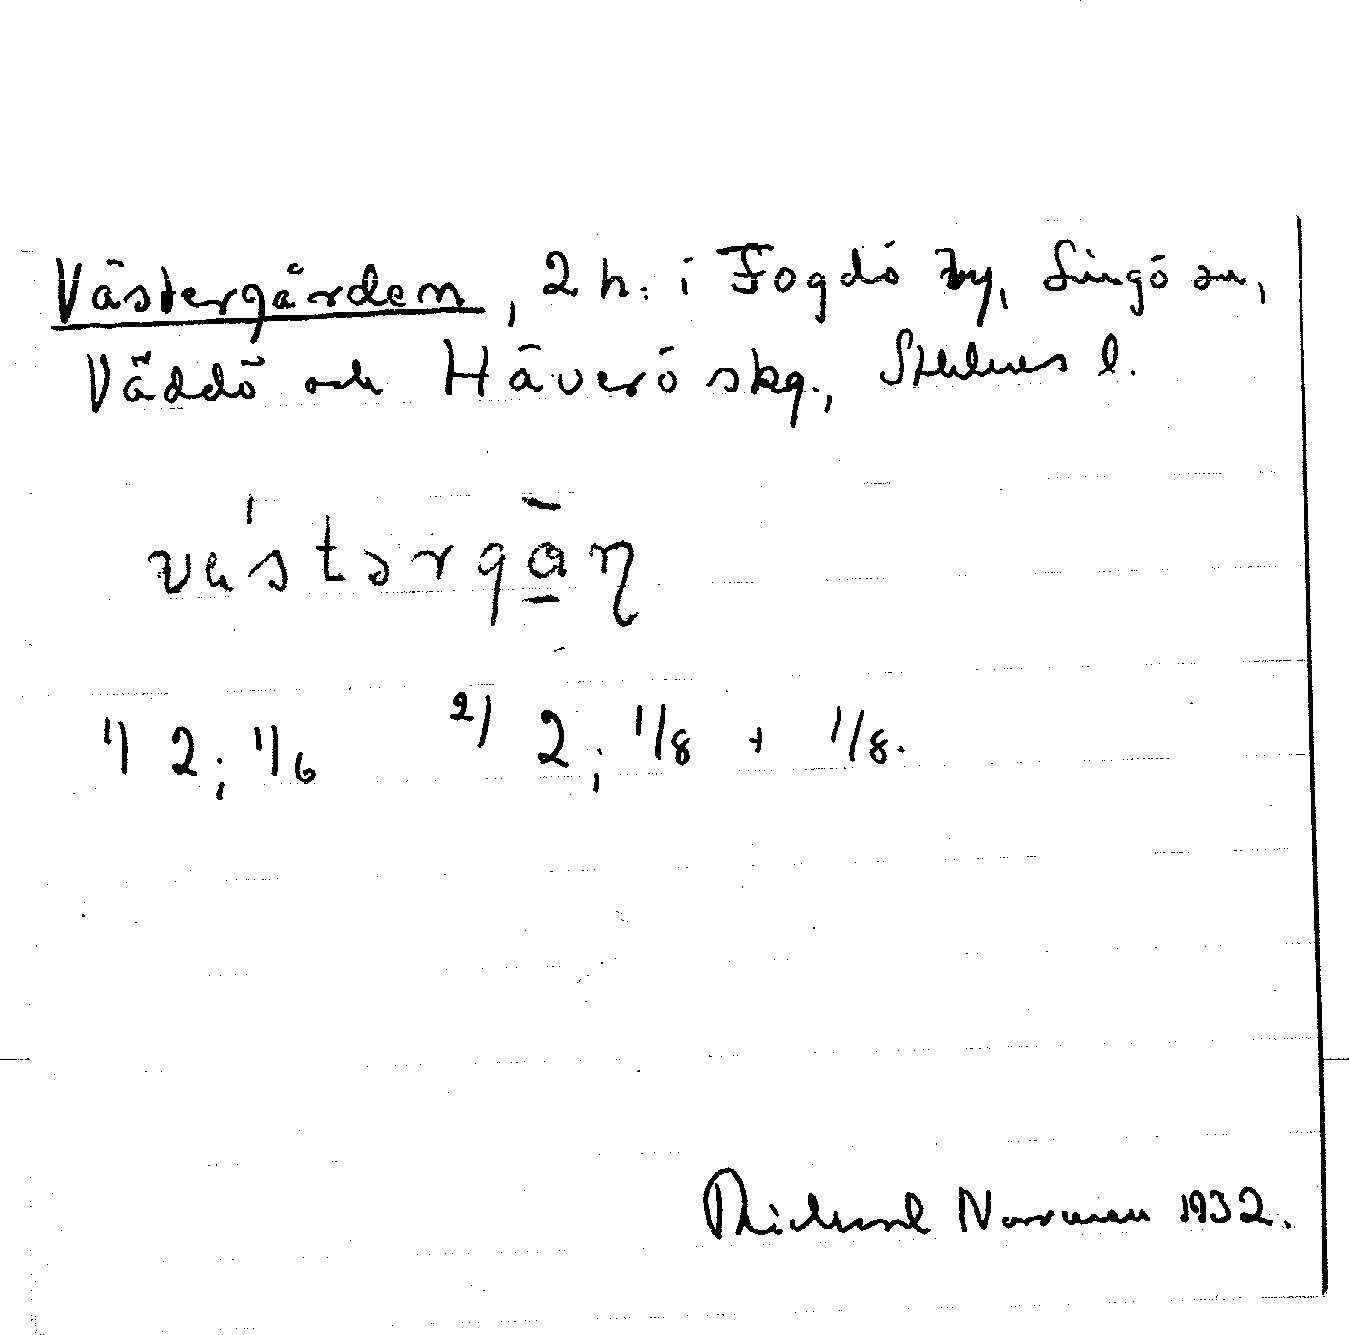 Västergården, 2 h. i Fogdö by, Singö sn,
Väddö och Häverö skg., Sthlms l.
västərgā̱ɳ
1) 2; 1/6 2) 2; 1/8 + 1/8.
Richard Norman 1932.